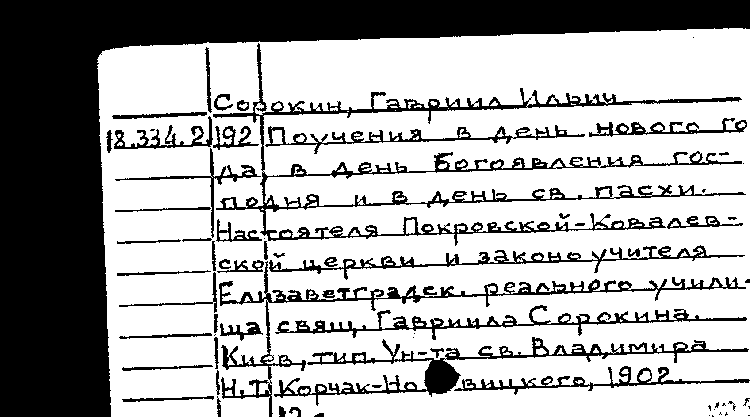 Сорокин, Гавриил Ильич
18.334.2.192 Поучения в день нового го
да, в день Богоявления гос-
подня и в день св. пасхи.
Настоятеля Покровской-Ковалев-
ской церкви и законоучителя
Елизаветградск. реального учили-
ща свящ. Гавриила Сорокина.
Киев, тип. Ун-та св. Владимира
Н.Т. Корчак-Новицкого, 1902.